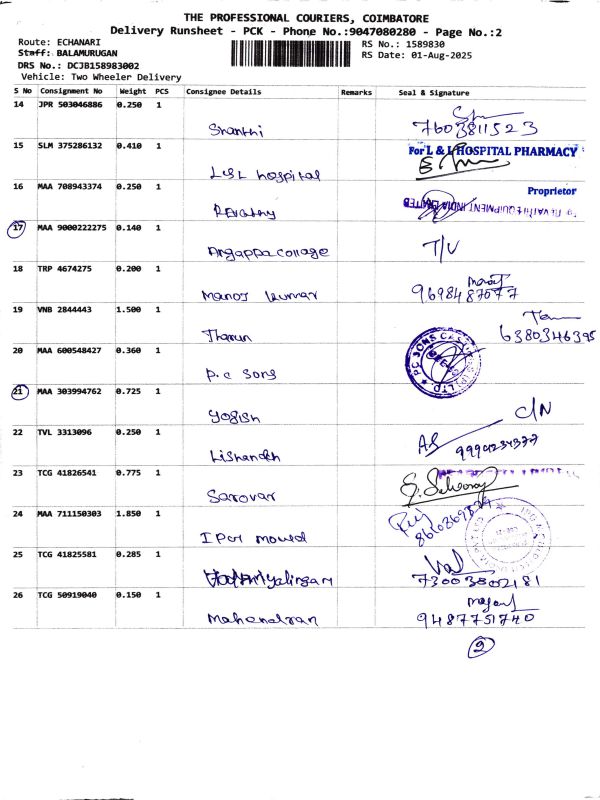 THE PROFESSIONAL COURIERS, COIMBATORE
Delivery Runsheet - PCK - Phone No.:9047080280 - Page No.:2
Route: ECHANARI
RS No.: 1589830
Staff: BALAMURUGAN
RS Date: 01-Aug-2025
DRS No.: DCJB158983002
Vehicle: Two Wheeler Delivery
S No Consignment No Weight PCS Consignee Details Remarks Seal & Signature
14 JPR 503046886 0.250 1
Shanthi 7603811523
15 SLM 375286132 0.410 1 For L & L HOSPITAL PHARMACY
L&L hospital
16 MAA 708943374 0.250 1 Proprietor
Revathy
17 MAA 9000222275 0.140 1
Angappa collage T/U
18 TRP 4674275 0.200 1
Manoj kumar 9698487077
19 VNB 2844443 1.500 1
Tharun 6380346395
20 MAA 600548427 0.360 1
P.C Sons
21 MAA 303994762 0.725 1
Yogish C/N
22 TVL 3313096 0.250 1
Lishandh
23 TCG 41826541 0.775 1
Sarovar
24 MAA 711150303 1.850 1
25 TCG 41825581 0.285 1
73003802181
26 TCG 50919040 0.150 1
Mahendran 9487751740
2